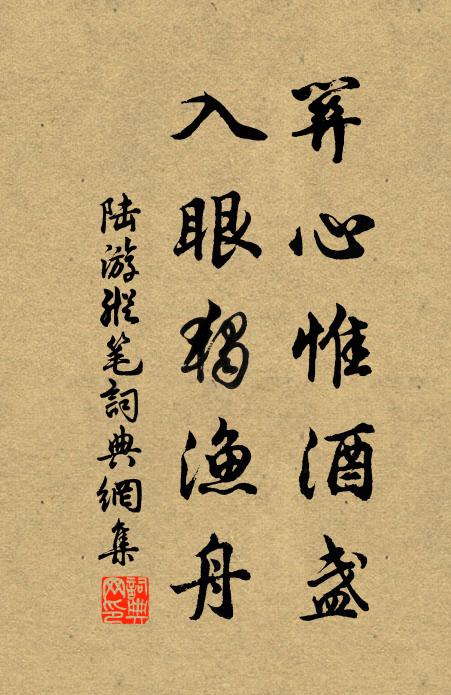 關心惟酒盞
入眼獨漁舟
陸游縱笔詞典網集
詞典网印